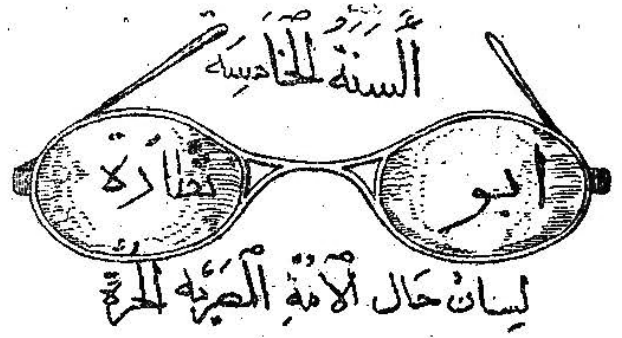 السَنَةُ الخَامِسَة
ابو نظارة
لِسان حَال الأُمَّةِ المِصرِيَّه الحُرَّة